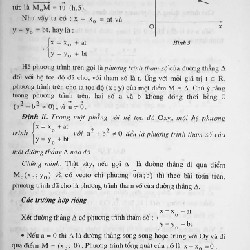 tức là M₀M = tu (h.5).
Như vậy ta có : x − x₀ = at và
y − y₀ = bt, hay là :
{ x = x₀ + at
y = y₀ + bt
Hình 5
Hệ phương trình trên gọi là phương trình tham số của đường thẳng Δ
đối với hệ tọa độ đã cho, với tham số là t. Ứng với mỗi giá trị t ∈ R,
phương trình trên cho ta tọa độ (x ; y) của một điểm M ∈ Δ. Chú ý rằng
trong phương trình trên, hai số a và b không đồng thời bằng 0
(a² + b² ≠ 0), vì u ≠ 0.
Định lí. Trong mặt phẳng với hệ tọa độ Oxy, mỗi hệ phương
trình { x = x₀ + at
y = y₀ + bt với a² + b² ≠ 0 đều là phương trình tham số của
một đường thẳng Δ nào đó.
Chứng minh. Thật vậy, nếu gọi Δ là đường thẳng đi qua điểm
M₀(x₀ ; y₀), có vectơ chỉ phương u(a ; b) thì theo bài toán trên,
phương trình đã cho là phương trình tham số của đường thẳng Δ.
Các trường hợp riêng
Xét đường thẳng Δ có phương trình tham số : { x − x₀ = at
y − y₀ = bt.
• Nếu a = 0 thì Δ là đường thẳng song song hoặc trùng với Oy và đi
qua điểm M₀ = (x₀ ; 0). Phương trình tổng quát của Δ là x − x₀ = 0.